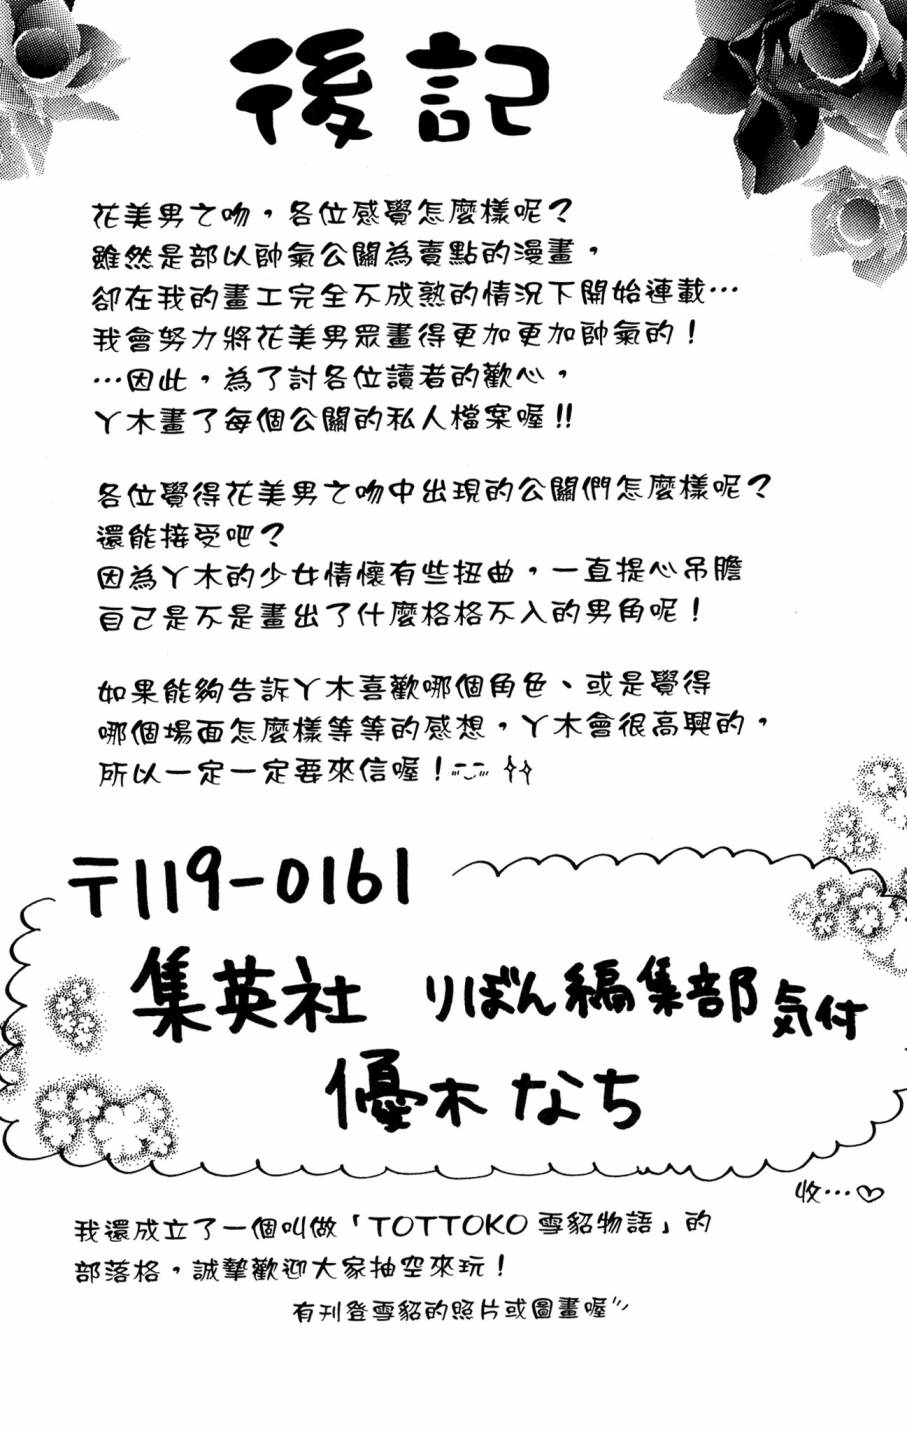 後記
花美男之吻，各位感覺怎麼樣呢？
雖然是部以帥氣公關為賣點的漫畫，
卻在我的畫工完全不成熟的情況下開始連載…
我會努力將花美男眾畫得更加更加帥氣的！
…因此，為了討各位讀者的歡心，
丫木畫了每個公關的私人檔案喔！！
各位覺得花美男之吻中出現的公關們怎麼樣呢？
還能接受吧？
因為丫木的少女情懷有些扭曲，一直提心吊膽
自己是不是畫出了什麼格格不入的男角呢！
如果能夠告訴丫木喜歡哪個角色、或是覺得
哪個場面怎麼樣等等的感想，丫木會很高興的，
所以一定一定要來信喔！
〒119-0161
集英社 りぼん編集部 気付
優木 なち
收…♡
我還成立了一個叫做「TOTTOKO雪貂物語」的
部落格，誠摯歡迎大家抽空來玩！
有刊登雪貂的照片或圖畫喔